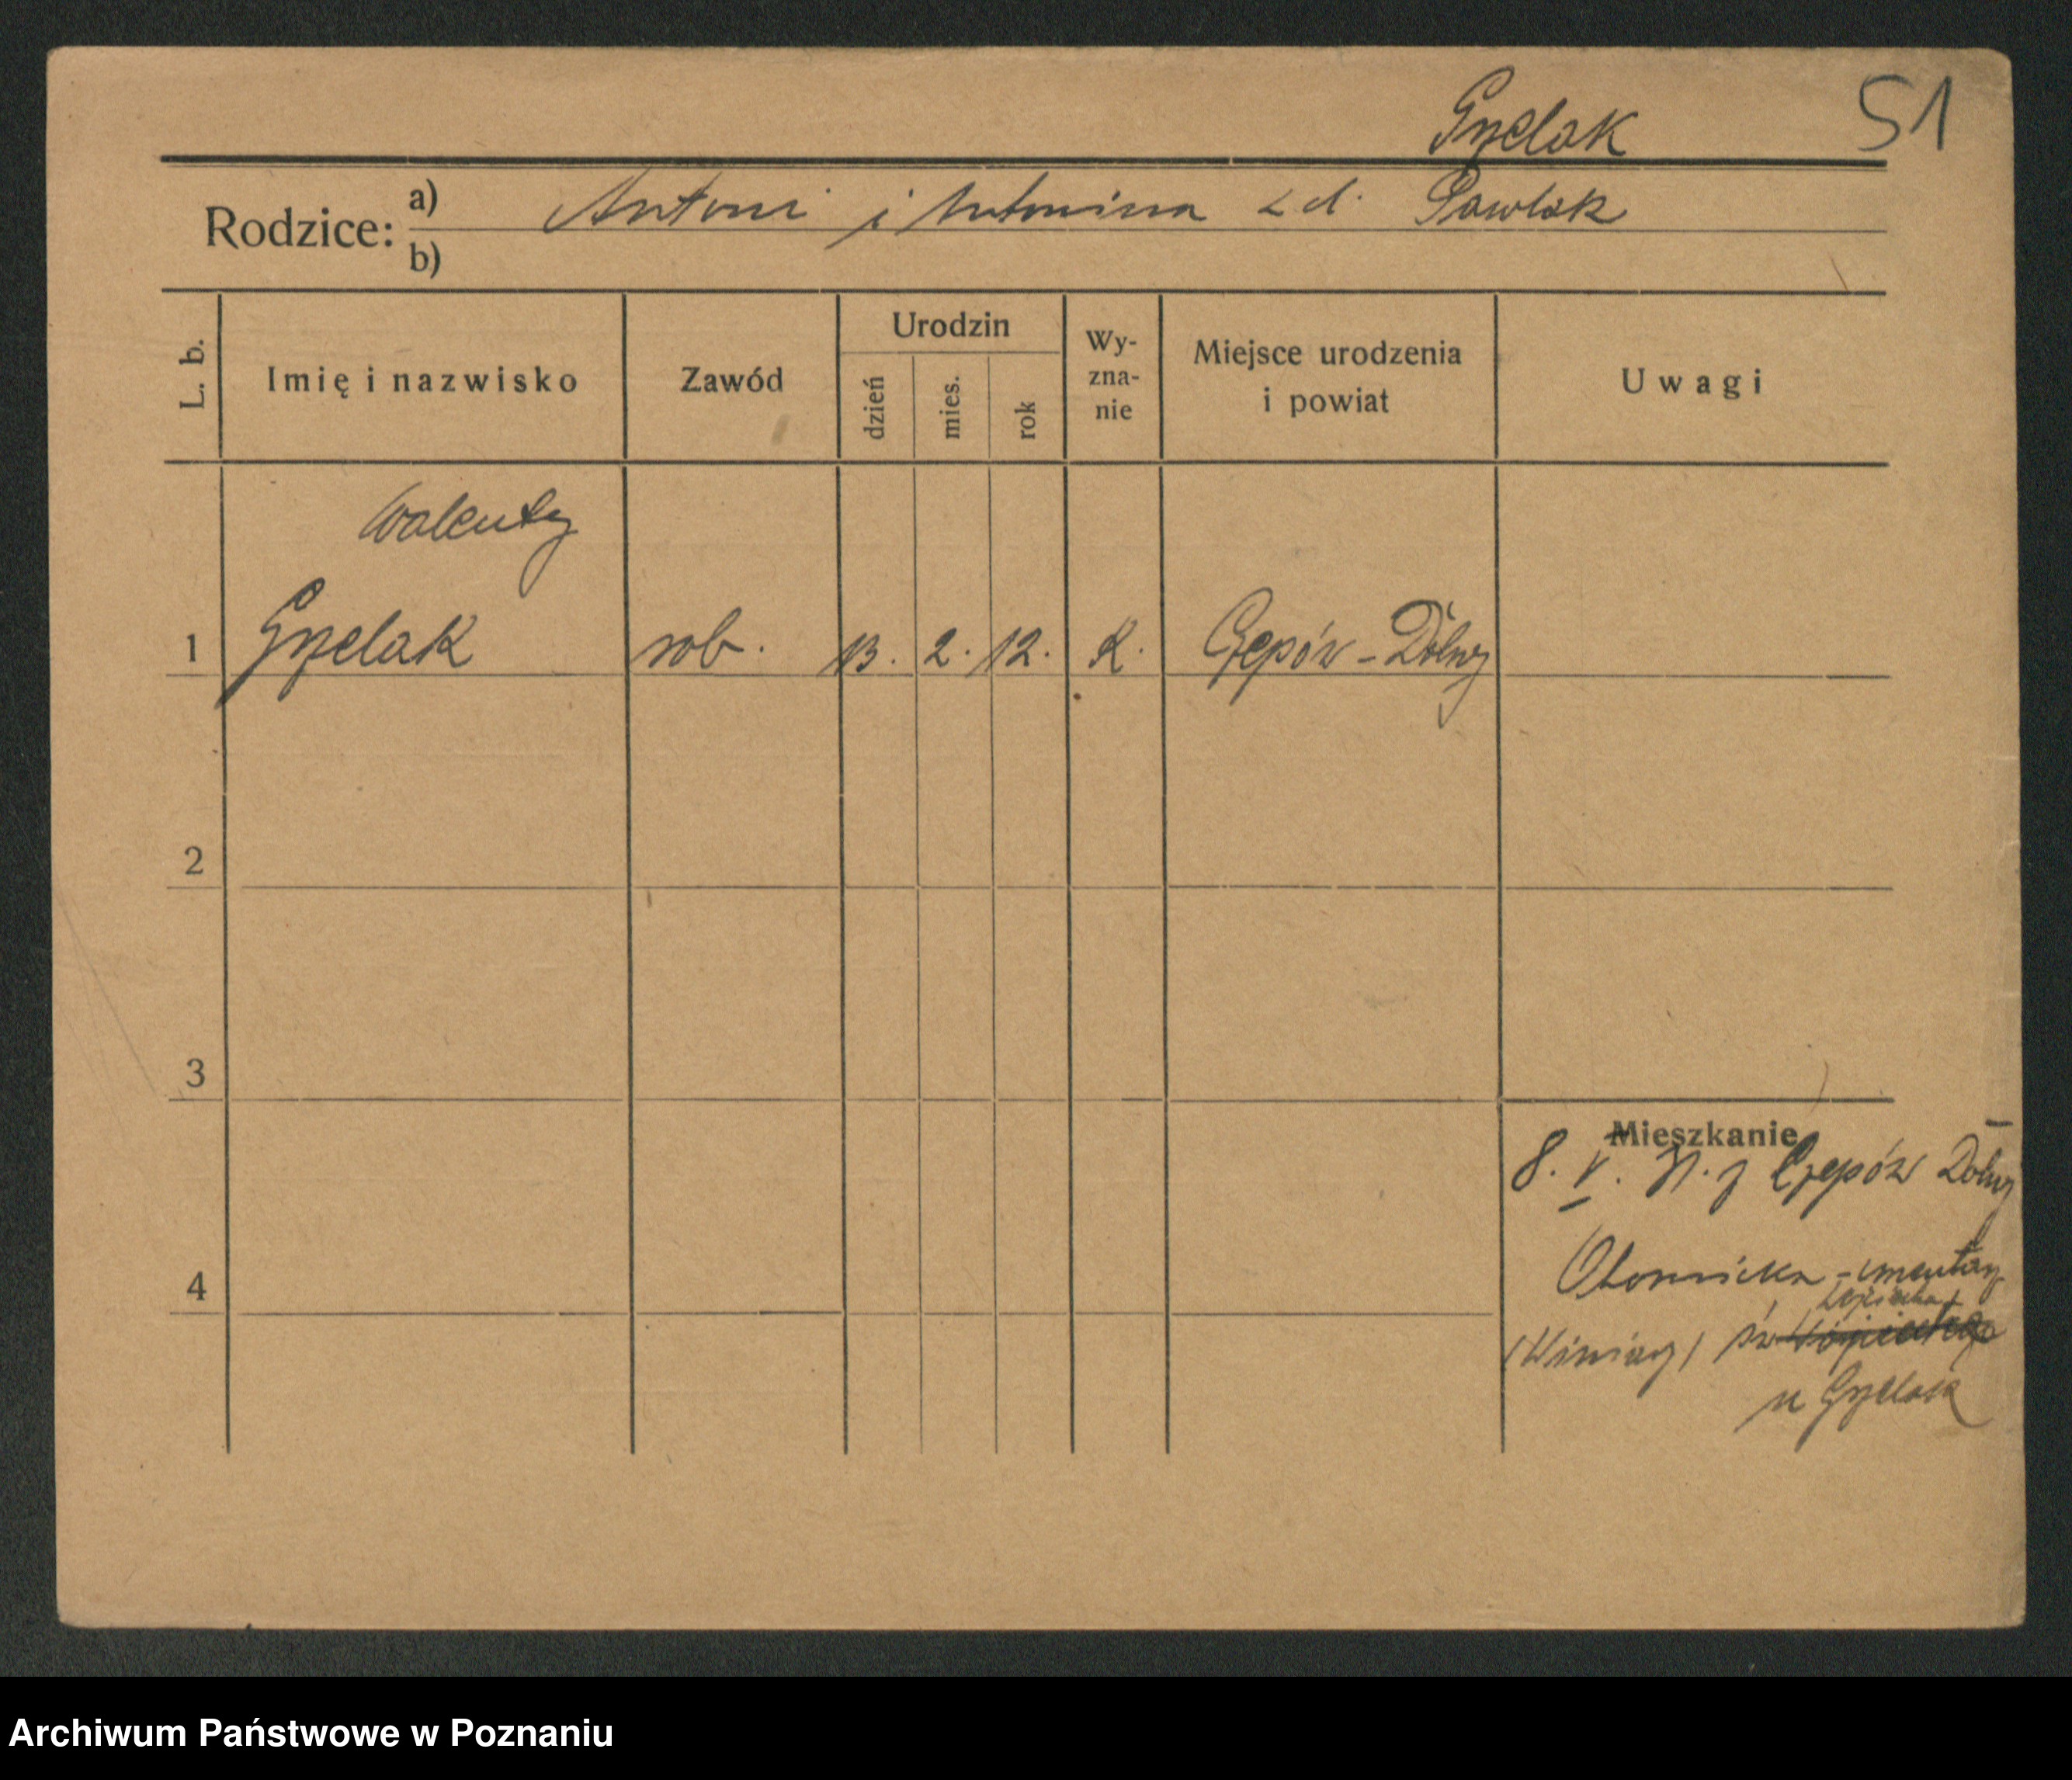 Grzelak 51
Rodzice: a) Antoni i Antonina z d. Pawlak
b)
L. b. Imię i nazwisko Zawód Urodzin dzień mies. rok Wy-zna-nie Miejsce urodzenia i powiat Uwagi
Walenty
1 Grzelak rob. 13. 2. 12. K. Czepów-Dolny
2
3
Mieszkanie
8. V. z Czepów Dolny
4 Obornicka - cmentarz
Wojciecha
(Winiary) św
u Grzelak
Archiwum Państwowe w Poznaniu